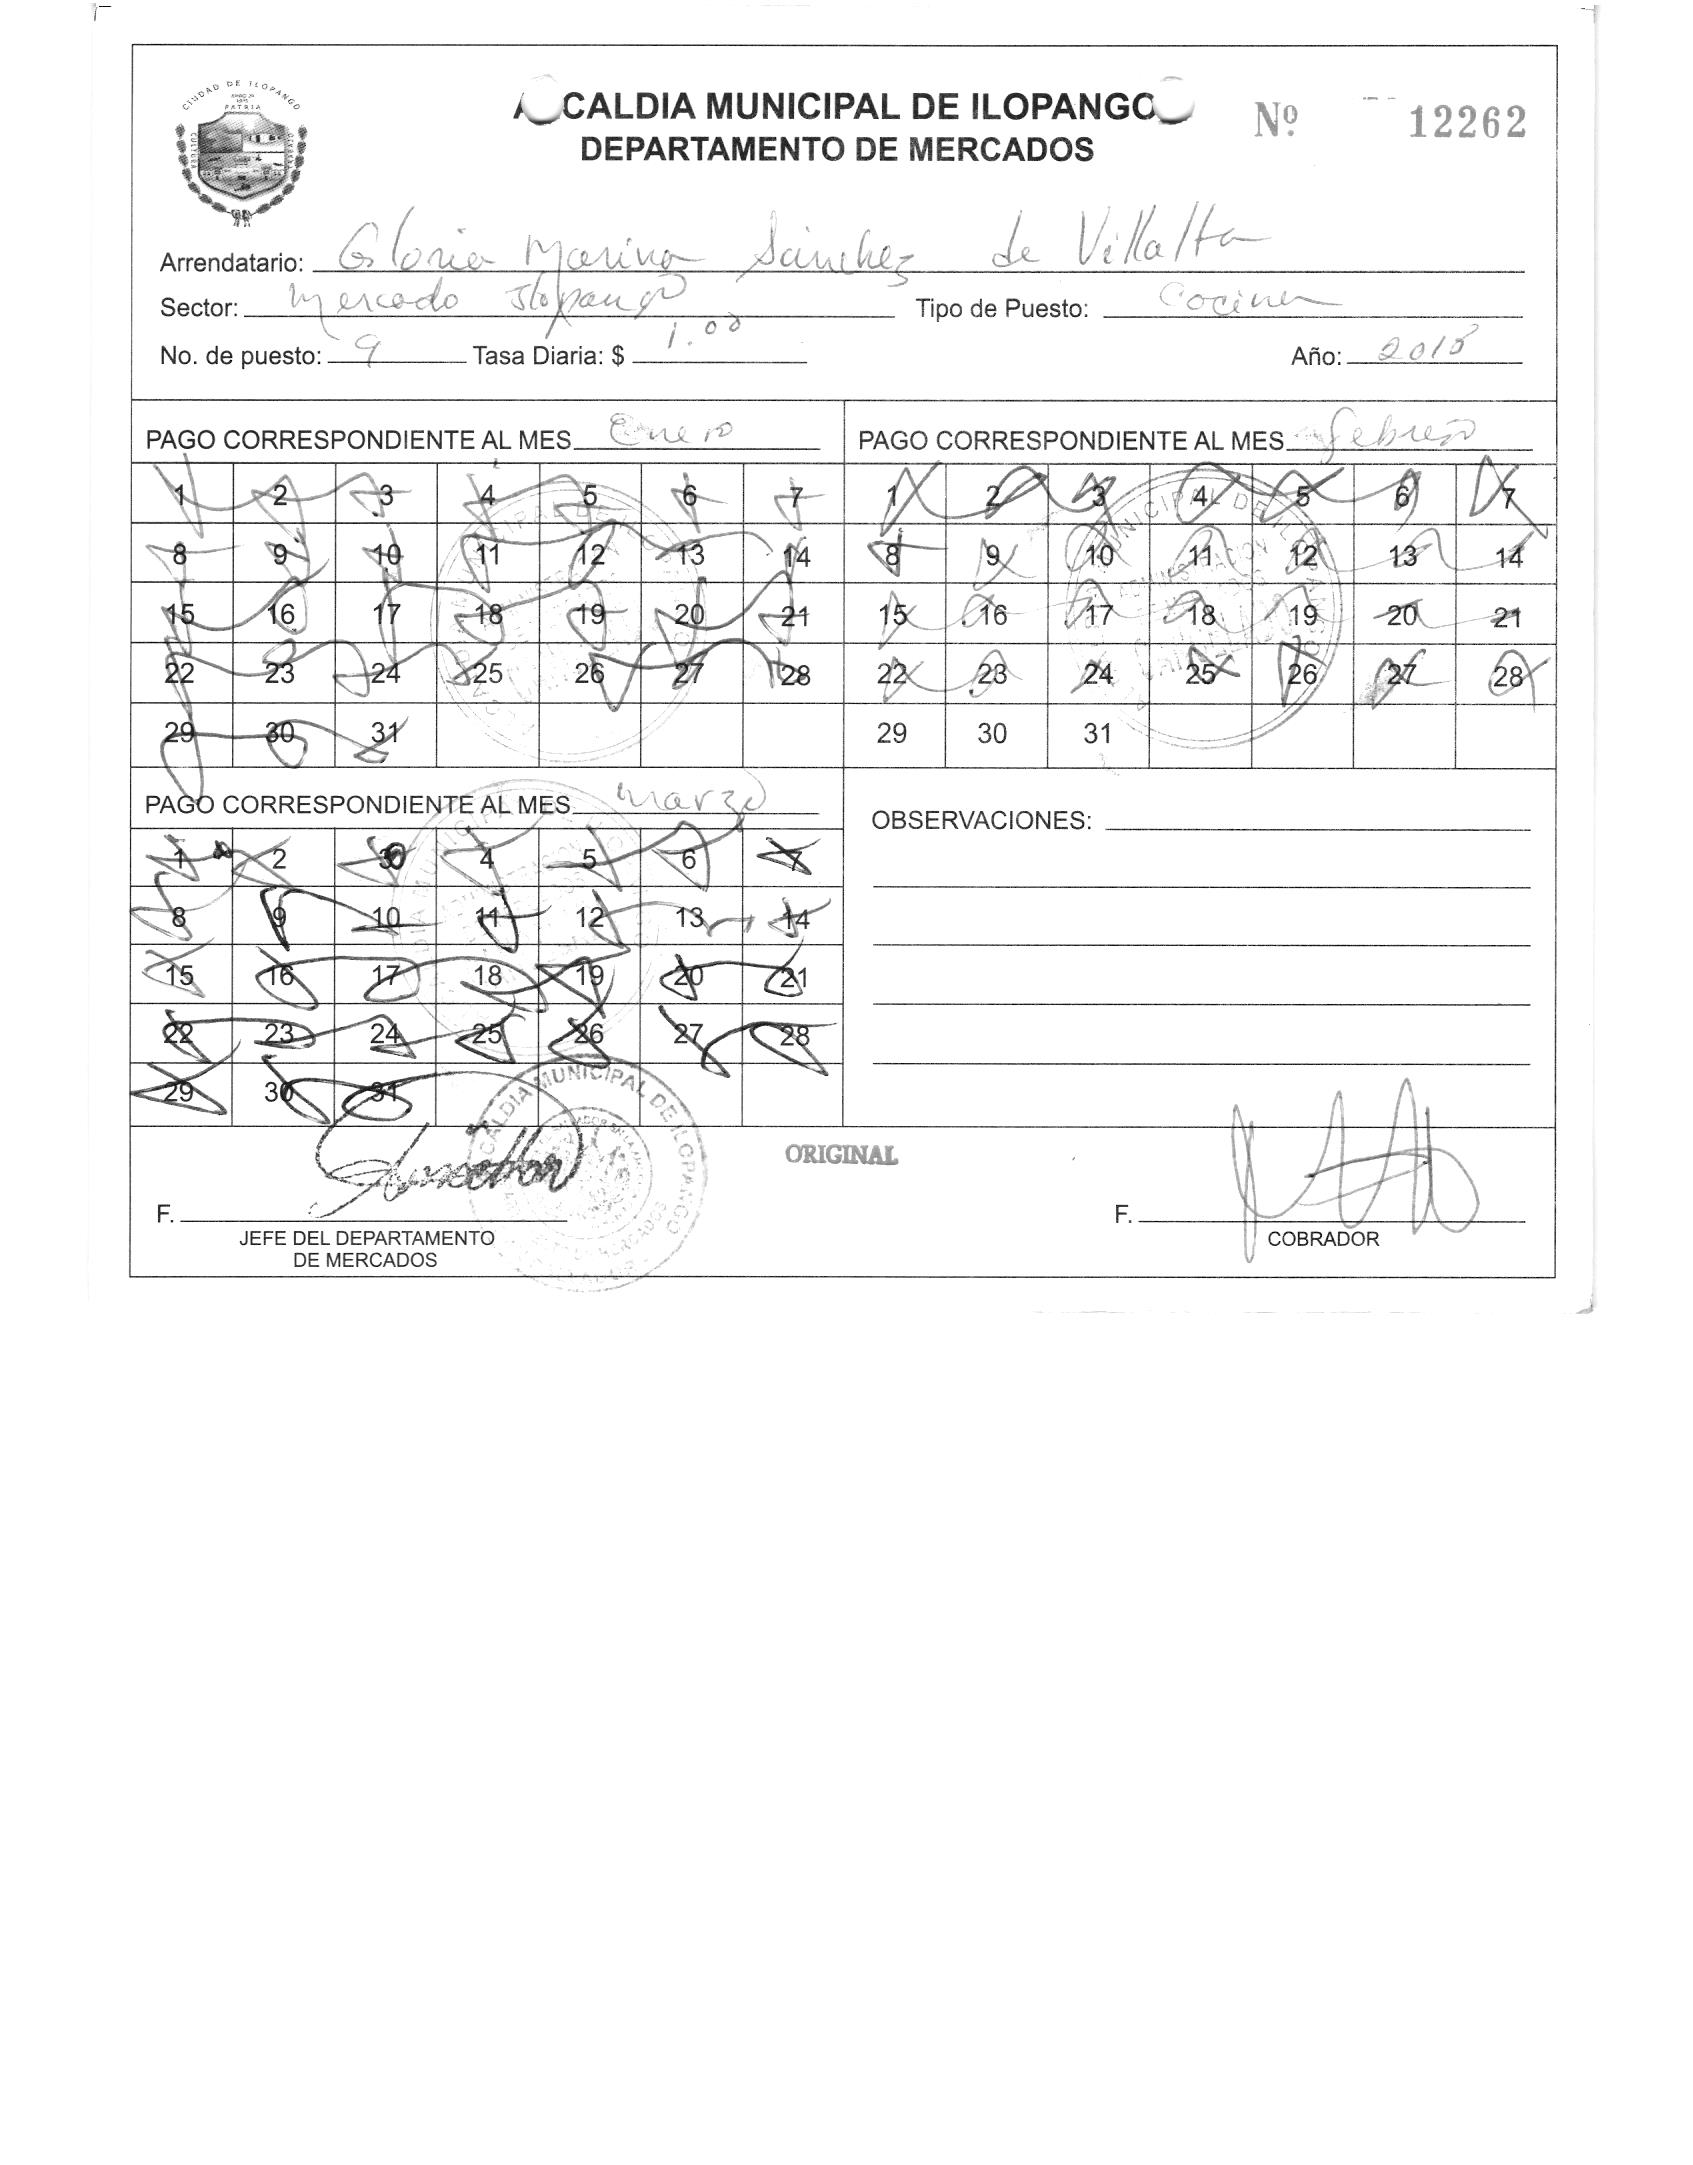 CIUDAD DE ILOPANGO
PATRIA
ALCALDIA MUNICIPAL DE ILOPANGO
DEPARTAMENTO DE MERCADOS
Nº 12262
Arrendatario: Gloria Marina Sánchez de Villalta
Sector: Mercado Ilopango Tipo de Puesto: Cocina
No. de puesto: 9 Tasa Diaria: $ 1.00 Año: 2015
PAGO CORRESPONDIENTE AL MES Enero
1 2 3 4 5 6 7
8 9 10 11 12 13 14
15 16 17 18 19 20 21
22 23 24 25 26 27 28
29 30 31
PAGO CORRESPONDIENTE AL MES febrero
1 2 3 4 5 6 7
8 9 10 11 12 13 14
15 16 17 18 19 20 21
22 23 24 25 26 27 28
29 30 31
PAGO CORRESPONDIENTE AL MES marzo
1 2 3 4 5 6 7
8 9 10 11 12 13 14
15 16 17 18 19 20 21
22 23 24 25 26 27 28
29 30 31
OBSERVACIONES:
ALCALDIA MUNICIPAL DE ILOPANGO
ORIGINAL
F.
JEFE DEL DEPARTAMENTO
DE MERCADOS
F.
COBRADOR